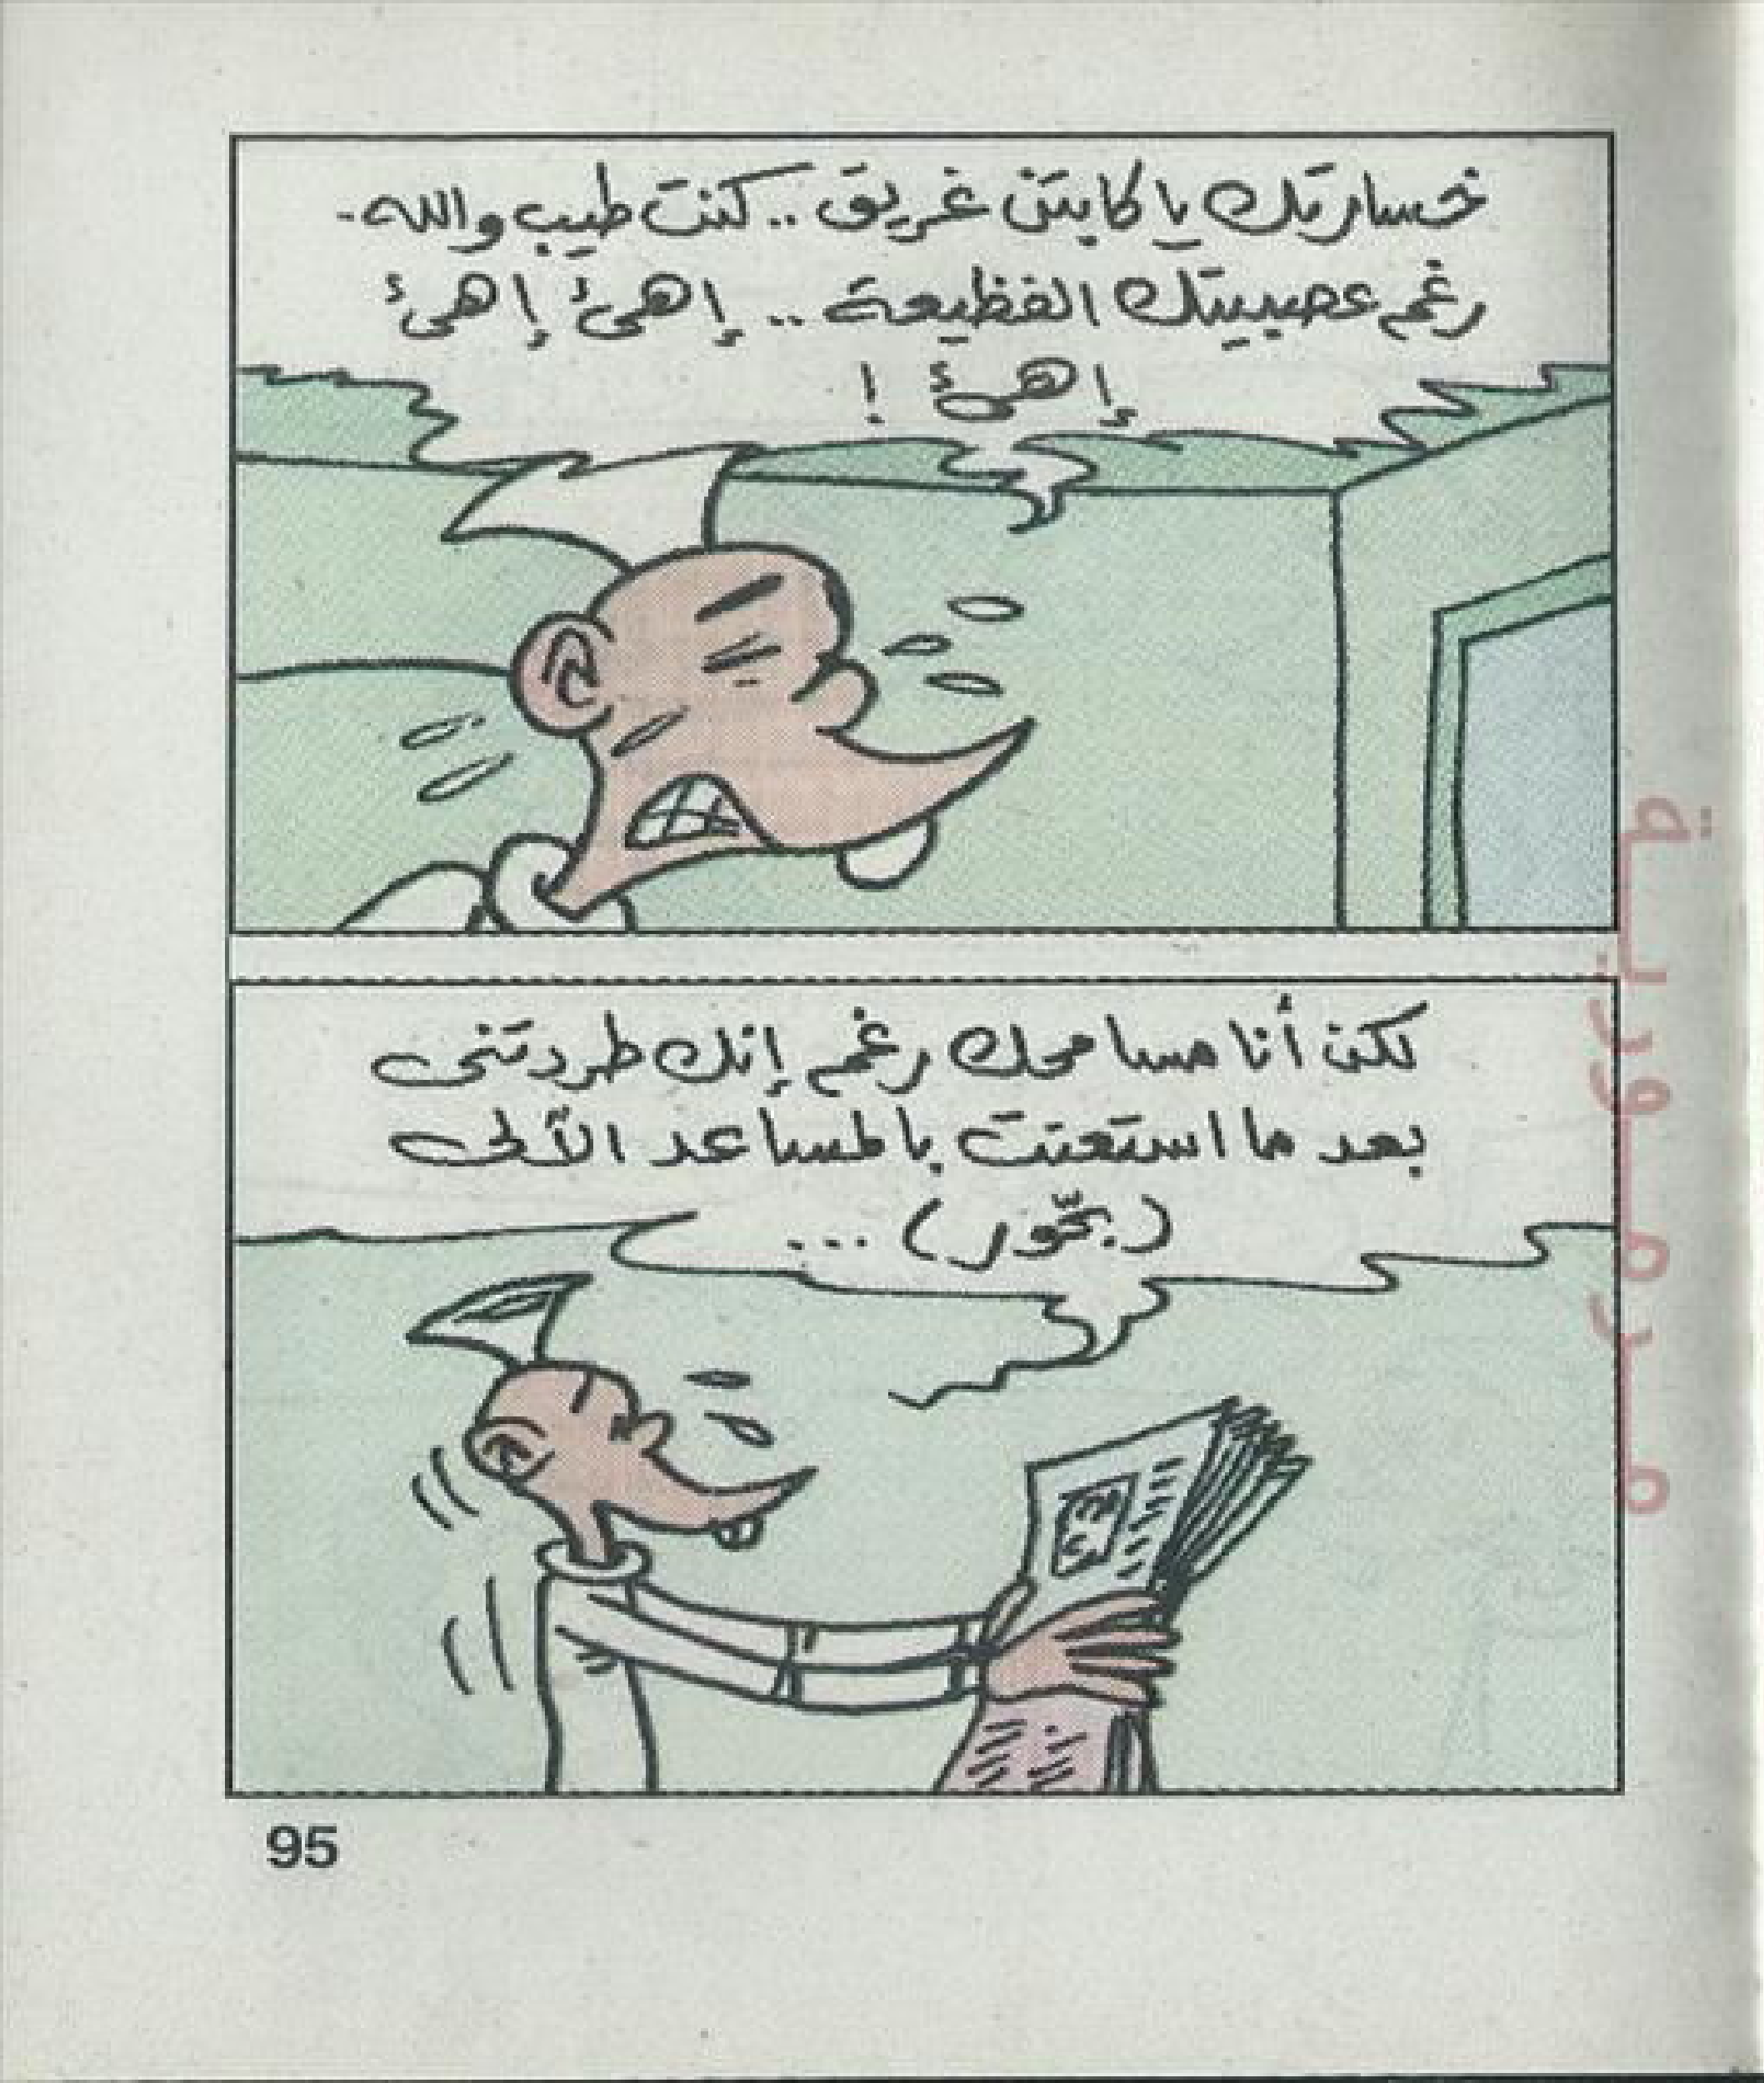 خسارتك يا كابتن غريق .. كنت طيب والله -
رغم عصبيتك الفظيعة .. إهئ إهئ
إهئ !
لكن أنا مسامحك رغم إنك طردتنى
بعد ما استعنت بالمساعد الآلى
(بخّور) ...
95